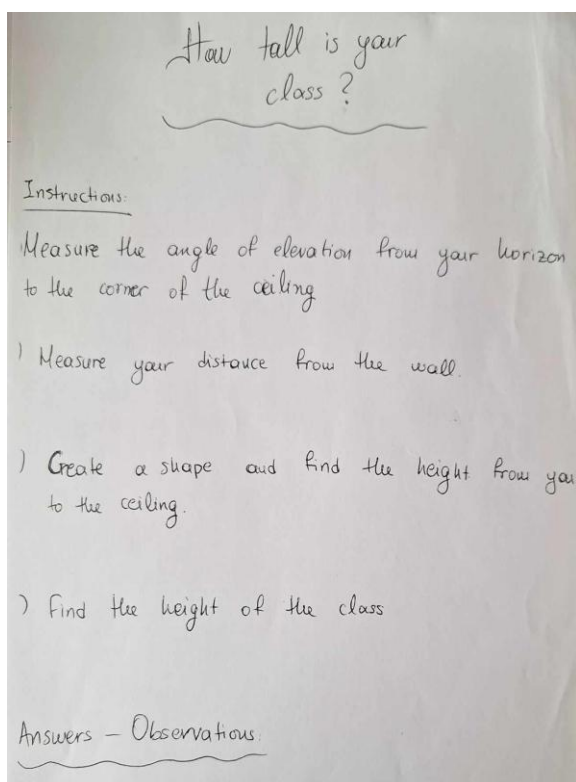 How tall is your
class ?
Instructions:
Measure the angle of elevation from your horizon
to the corner of the ceiling
) Measure your distance from the wall.
) Create a shape and find the height from you
to the ceiling.
) Find the height of the class
Answers – Observations: